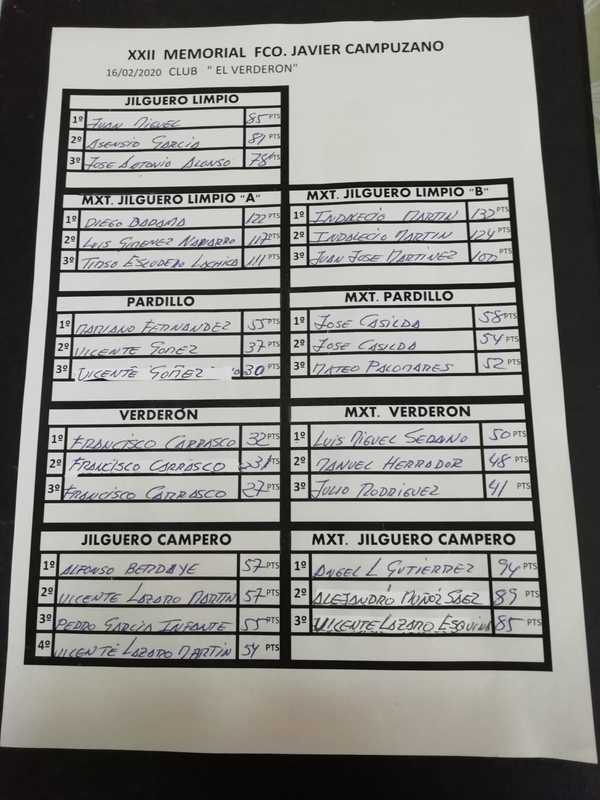 XXII MEMORIAL FCO. JAVIER CAMPUZANO
16/02/2020 CLUB " EL VERDERON"
JILGUERO LIMPIO
1º JUAN MIGUEL 85 PTS
2º ASENSIO GARCIA PTS
3º JOSE ANTONIO ALONSO 78 PTS
MXT. JILGUERO LIMPIO "A"
1º DIEGO BADAMA 122 PTS
2º LUIS GIMENEZ NAVARRO 117 PTS
3º ESCUDERO LACHICA 111 PTS
MXT. JILGUERO LIMPIO "B"
1º INDALECIO MARTIN 132 PTS
2º INDALECIO MARTIN 124 PTS
3º JUAN JOSE MARTINEZ PTS
PARDILLO
1º MARIANO FERNANDEZ 55 PTS
2º VICENTE GOMEZ 37 PTS
3º VICENTE GOMEZ 30 PTS
MXT. PARDILLO
1º JOSE CASILDA 58 PTS
2º JOSE CASILDA 54 PTS
3º MATEO PALOMARES 52 PTS
VERDERÓN
1º FRANCISCO CARRASCO 32 PTS
2º FRANCISCO CARRASCO 31 PTS
3º FRANCISCO CARRASCO 27 PTS
MXT. VERDERON
1º LUIS MIGUEL SEDANO 50 PTS
2º MANUEL HERRADOR 48 PTS
3º JULIO RODRIGUEZ 41 PTS
JILGUERO CAMPERO
1º ALFONSO BERDAYE 57 PTS
2º VICENTE LAZARO MARTIN 57 PTS
3º PEDRO GARCIA INFANTE 55 PTS
4º VICENTE LAZARO MARTIN 54 PTS
MXT. JILGUERO CAMPERO
1º ANGEL L GUTIERREZ 94 PTS
2º ALEJANDRO MUÑOZ SAEZ 89 PTS
3º VICENTE LAZARO ESQUINA 85 PTS